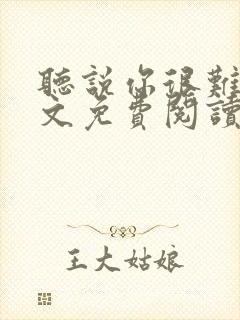 聽說你很難
文免費閱讀
王大姑娘